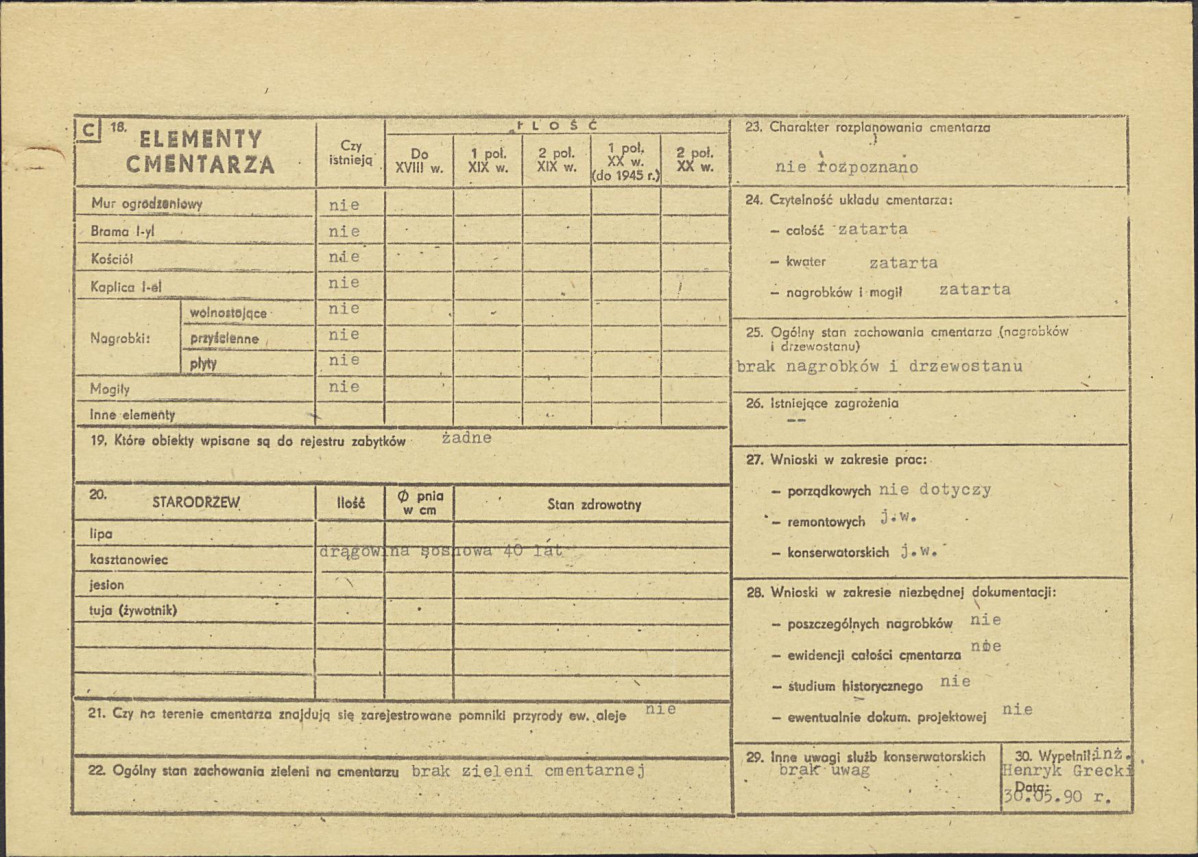 C 18. ELEMENTY CMENTARZA
Czy istnieją
ILOŚĆ
Do XVIII w.
1 poł. XIX w.
2 poł. XIX w.
1 poł. XX w. (do 1945 r.)
2 poł. XX w.
Mur ogrodzeniowy nie
Brama I-yl nie
Kościół nie
Kaplica I-el nie
Nagrobki:
wolnostojące nie
przyścienne nie
płyty nie
Mogiły nie
Inne elementy
19. Które obiekty wpisane są do rejestru zabytków żadne
20. STARODRZEW Ilość Ø pnia w cm Stan zdrowotny
lipa
drągowina sosnowa 40 lat
kasztanowiec
jesion
tuja (żywotnik)
21. Czy na terenie cmentarza znajdują się zarejestrowane pomniki przyrody ew. aleje nie
22. Ogólny stan zachowania zieleni na cmentarzu brak zieleni cmentarnej
23. Charakter rozplanowania cmentarza
nie rozpoznano
24. Czytelność układu cmentarza:
– całość zatarta
– kwater zatarta
– nagrobków i mogił zatarta
25. Ogólny stan zachowania cmentarza (nagrobków
i drzewostanu)
brak nagrobków i drzewostanu
26. Istniejące zagrożenia
--
27. Wnioski w zakresie prac:
– porządkowych nie dotyczy
– remontowych j.w.
– konserwatorskich j.w.
28. Wnioski w zakresie niezbędnej dokumentacji:
– poszczególnych nagrobków nie
– ewidencji całości cmentarza nie
– studium historycznego nie
– ewentualnie dokum. projektowej nie
29. Inne uwagi służb konserwatorskich
brak uwag
30. Wypełnił: inż.
Henryk Grecki
Data:
30.05.90 r.